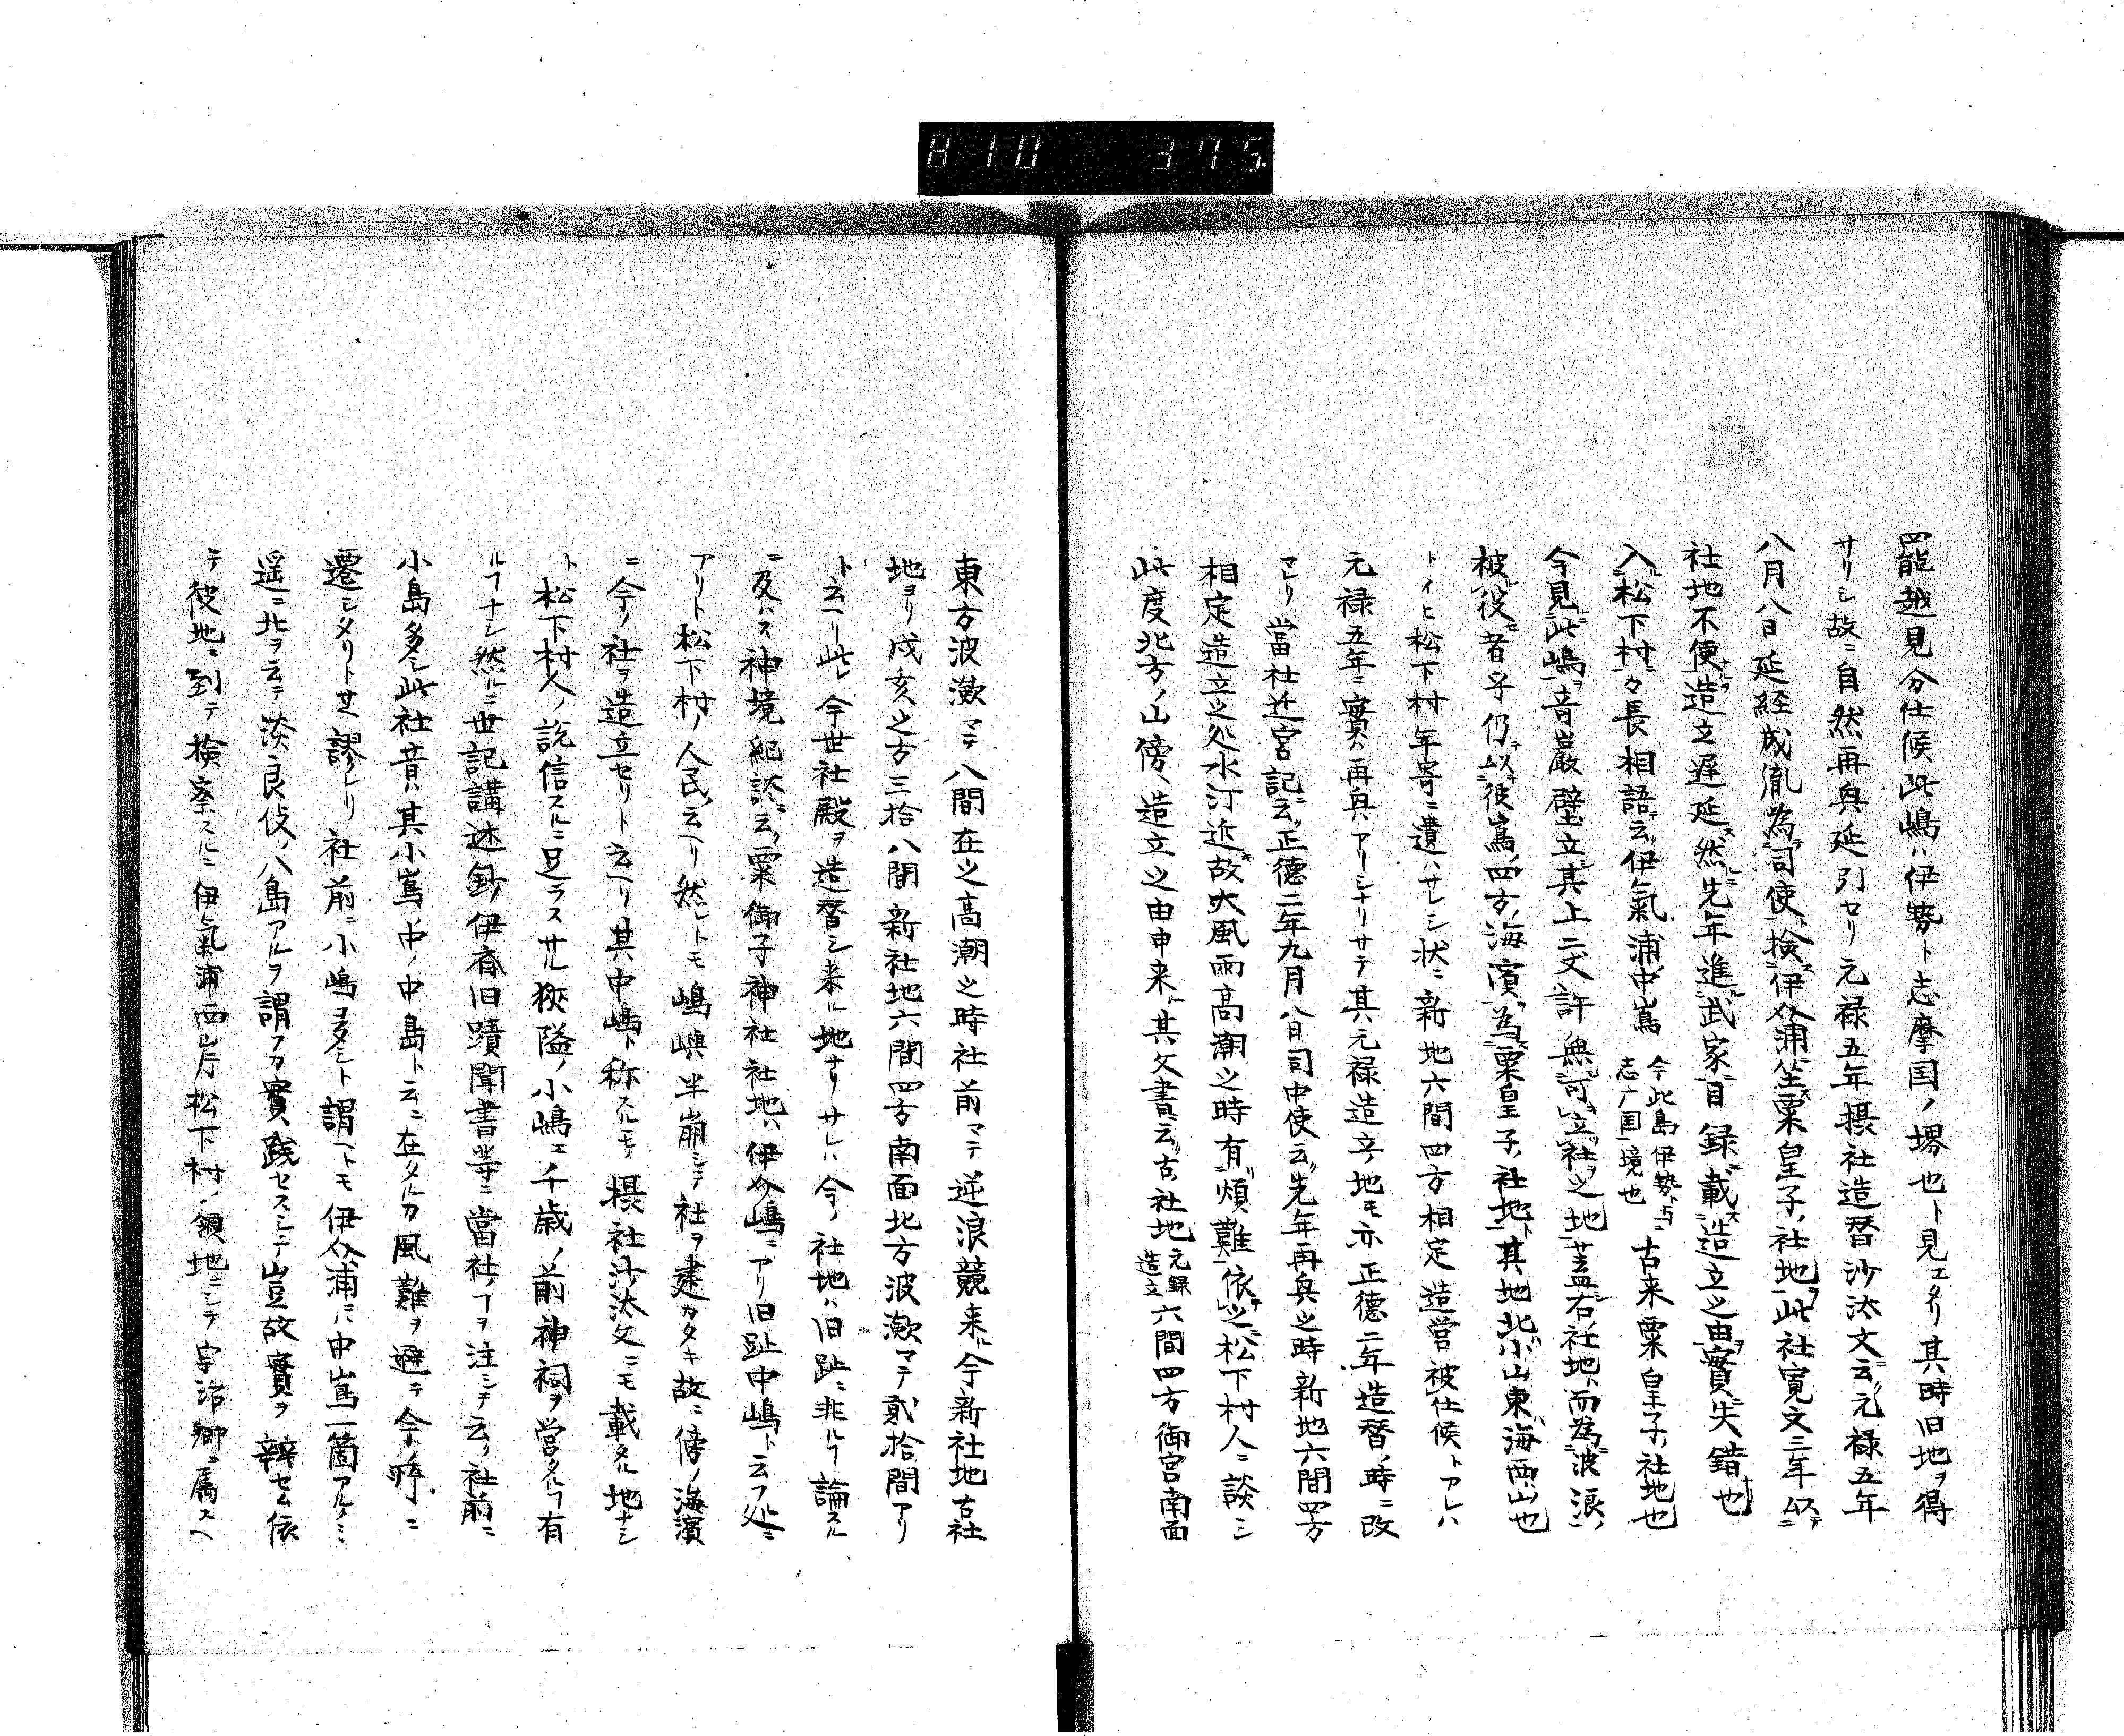 810 375.
罷越見分仕候此嶋ハ伊勢ト志摩国ノ堺也ト見エタリ其時旧地ヲ得
サリシ故ニ自然再興延引セリ元禄五年摂社造替沙汰文云元禄五年
八月八日延経成胤為司使検伊介浦坐粟皇子社地此社寛文三年以
社地不便造立遅延然先年進武家目録載造立之由實失錯也
入松下村々長相語云伊氣浦中嶌今此島伊勢与志广国境也古来粟皇子社地也
今見此嶋音巌壁立其上二丈許無可立社之地蓋右社地而為波浪
被役者乎仍以彼嶌四方海濱為粟皇子社地其地北小山東海西山也
トイヒ松下村年寄ニ遣ハサレシ状ニ新地六間四方相定造営被仕候トアレハ
元禄五年ニ實ハ再興アリシナリサテ其元禄造立ノ地モ亦正徳二年造替ノ時ニ改
マレリ當社近宮記云正徳二年九月八日司中使云先年再興之時新地六間四方
相定造立之処水汀近故大風雨高潮之時有煩難依之松下村人ニ談シ
此度北方ノ山傍ヘ造立之由申来其文書云古社地元録造立六間四方御宮南面
東方波漱マテ八間在之高潮之時社前マテ逆浪競来今新社地古社
地ヨリ戌亥之方三拾八間新社地六間四方南面北方波漱マテ貮拾間アリ
ト云ヘリ此今世社殿ヲ造替シ来ル地ナリサレハ今ノ社地ハ旧趾ニ非ルヿ論スル
ニ及ハス神境紀談云粟御子神社社地ハ伊介嶋ニアリ旧趾中嶋ト云フ処ニ
アリト松下村ノ人民云ヘリ然レトモ嶋嶼半崩シテ社ヲ建カタキ故ニ傍ノ海濱
ニ今ノ社ヲ造立セリト云ヘリ其中嶋ト称スルモ摂社沙汰文ニモ載タル地ナレ
ト松下村人ノ説信スルニ足ラスサル狹隘ノ小嶋エ千歳ノ前神祠ヲ営タルヿ有
ルヿナシ然ルニ世記講述鈔伊夲旧蹟聞書等ニ當社ノヿヲ注シテ云ク社前ニ
小島多シ此社昔ハ其小嶌中ノ中島ト云ニ在タルカ風難ヲ避テ今ノ處ニ
遷シタリトサ謬レリ社前ニ小嶋多シト謂ヘトモ伊介浦ニハ中嶌一箇アルノミ
遥ニ北ヲ云テ淡良伎ノ八島アルヲ謂フカ實踐セスシテ豈故實ヲ辨セム依
テ彼地ニ到テ検察スルニ伊氣浦西岸松下村ノ領地ニシテ宇治郷ニ属スヘ